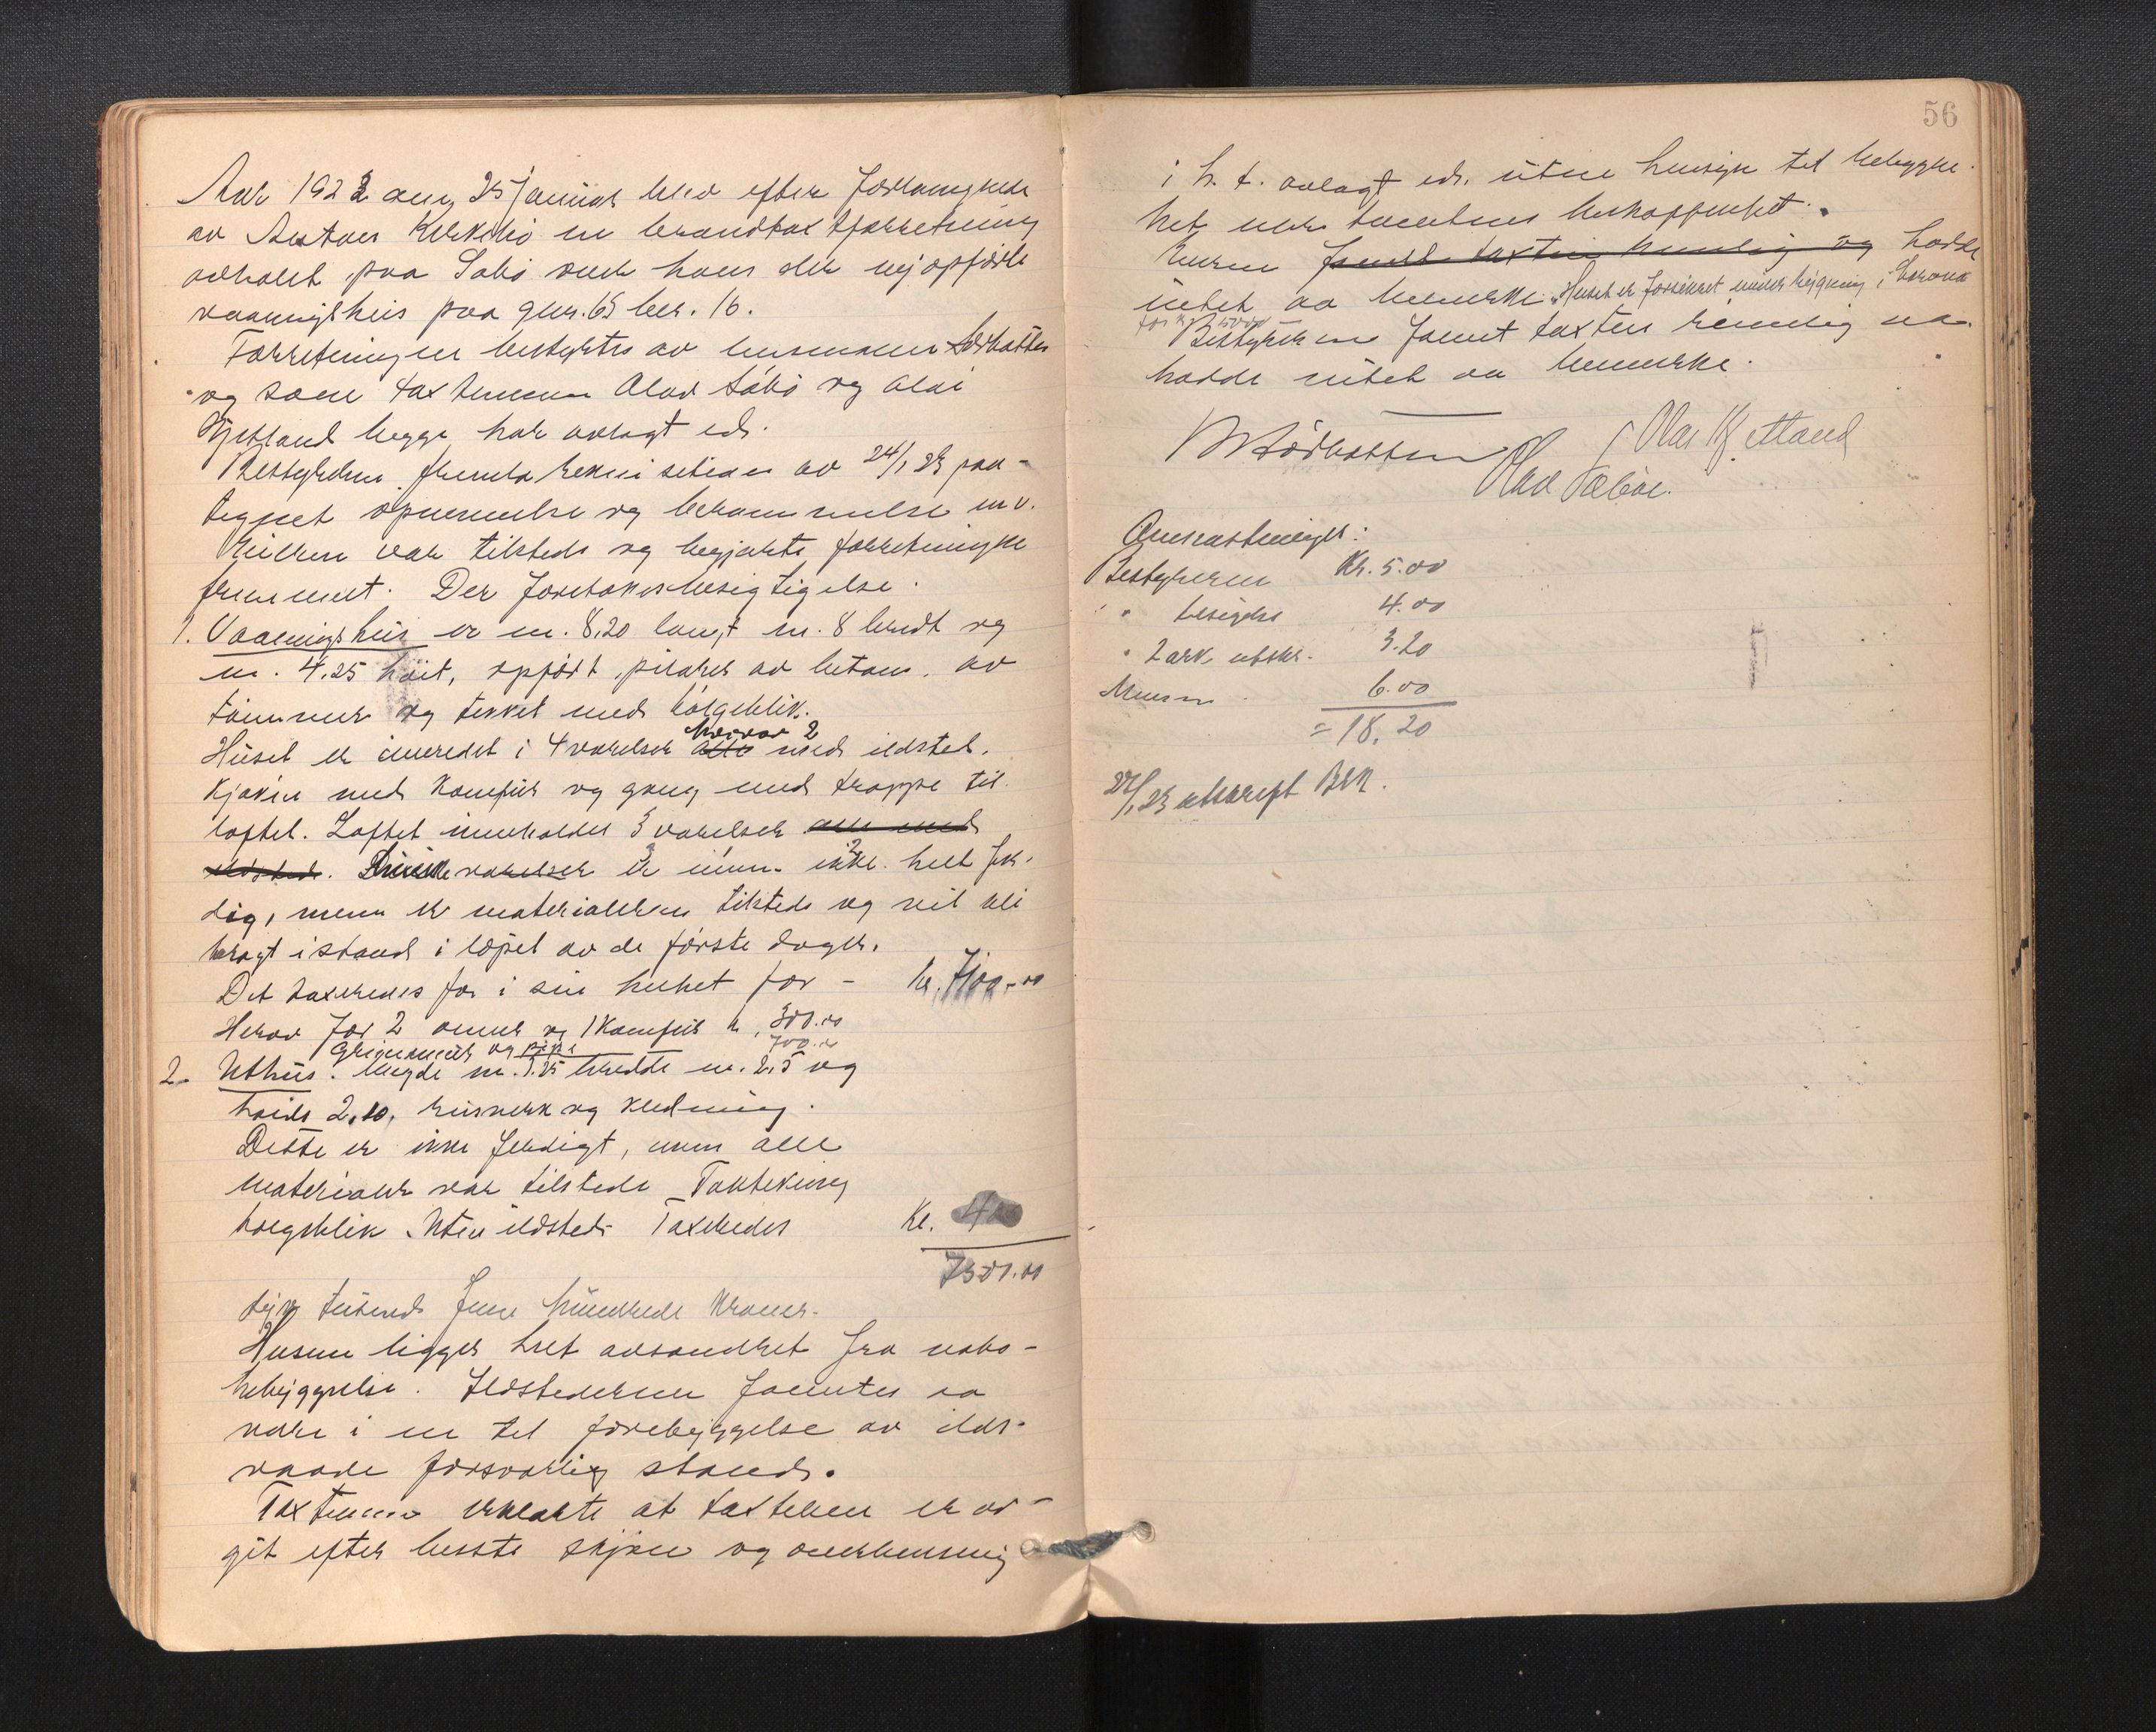 Aar 1923 den 25 januar blev efter forlangende
av Anton Kirkebø en brandtaxtforretning
avholdt paa Sæbø over hans der nyopførte
vaaningshus paa gnr. 65 bnr. 16.
Forretningen bestyrtes av lensmann Nordhatten
og som taxtmenn Olav Sæbø og Olai
Kjetland begge har avlagt ed.
Bestyreren fremla rekvisition av 24/1 23 paa-
tegnet opnevnelse og berammelse m.v.
Eieren var tilstede og begjærte forretningen
fremmet. Der foretokes besigtigelse.
1. Vaaningshus er m. 8,20 langt m. 8 bredt og
m. 4.25 høit, opført pilarer av betong, av
tømmer og tekket med bølgeblik.
hvorav 2
Huset er innredet i 4 værelser alle med ildsted.
Kjøken med komfur og gang med trappe til
loftet. Loftet inneholder 3 værelser alle med
ildsted. Disse værelser er ennu ikke helt fer-
dig, menn er materialerne tilstede og vil bli
bragt istand i løpet av de første dager.
Det taxeredes for i sin helhet for - kr. 7100.00
Herav for 2 ovner og 1 komfur kr. 300.00
Grunnmur og pipe 700.00
2. Uthus. Lengde m. 3.25 bredde m. 2,5 og
høide 2,10, bisverk og kledning.
Dette er ikke ferdigt, men alle
materialer var tilstede. Taktekning
bølgeblik. Uten ildsted. Taxeredes Kr. 400
7500.00
Syv tusend fem hundrede kroner.
Husene ligger helt avsondret fra nabo-
bebyggelse. Ildstederne fantes aa
være i en tel forebyggelse av ilds-
vaade forsvarlig stand.
Taxtmenn erklærte at taxten er av-
git efter beste skjøn og overbevisning
56
i h. t. avlagt ed. uten hensyn til bebyggel-
het eller tomtens beskaffenhet.
Eieren fandt taxten rimelig og hadde
intet aa bemerke. Huset er forsikret under bygning i Norona
for kr 5000
Bestyreren fannt taxten rimelig og
hadde intet aa bemerke.
Nordhatten
Olai Kjetland
Olav Sæbøe.
Omkostninger:
Bestyreren Kr. 5.00
" besigtelse 4.00
" 2 ark utskr. 3.20
Menn 6.00
= 18.20
27/1 23 utskrift BRK.